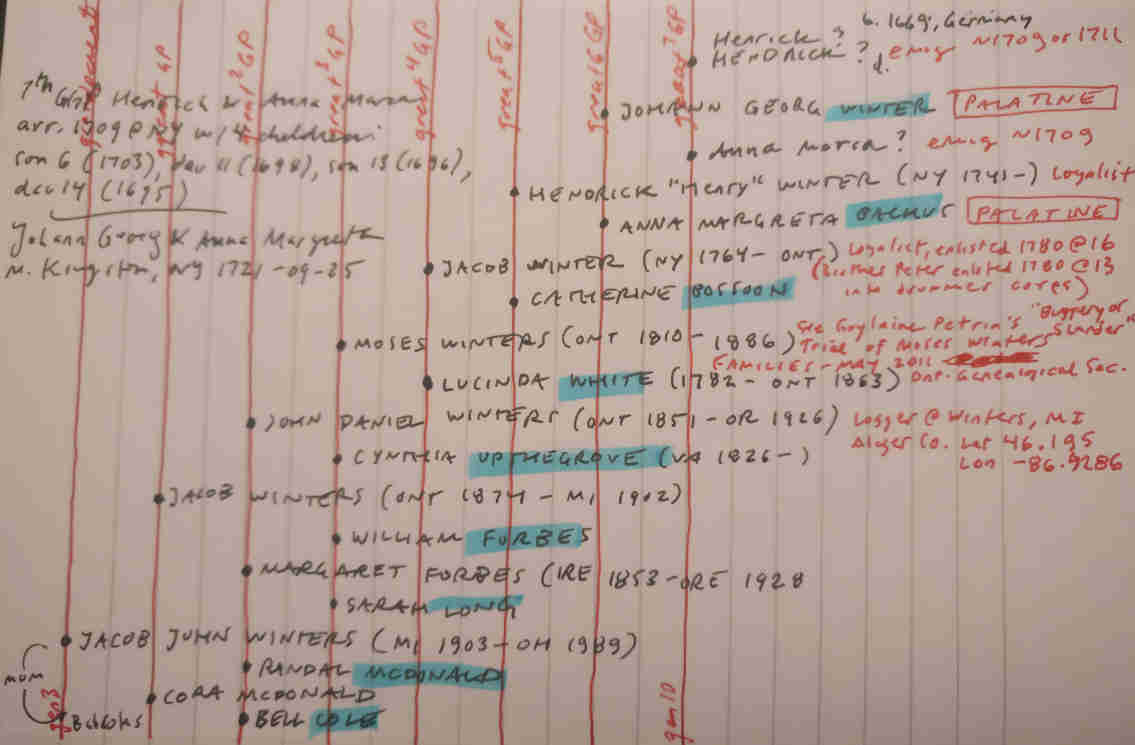 grandparent
great GP
great² GP
great³ GP
great⁴ GP
great⁵ GP
great⁶ GP
great⁷ GP
Henrick ? b. 1669, Germany
HENDRICK ? d. emig ~1709 or 1711
7th GGP Hendrick & Anna Maria
JOHANN GEORG WINTER PALATINE
arr. 1709 @ NY w/ 4 children:
Anna Maria ? emig ~1709
son 6 (1703), dau 11 (1698), son 13 (1696),
dau 14 (1695)
HENDRICK "Henry" WINTER (NY 1741-) Loyalist
ANNA MARGRETA BACKUS PALATINE
Johann Georg & Anna Margreta
m. Kingston, NY 1721-09-25
JACOB WINTER (NY 1764- ONT) Loyalist, enlisted 1780 @ 16
(Brother Peter enlisted 1780 @ 13
into drummer corps)
CATHERINE BOSSOON
MOSES WINTERS (ONT 1810 - 1886) See Guylaine Petrin's "Buggery or Slander"
Trial of Moses Winters
FAMILIES - MAY 2011
LUCINDA WHITE (1782 - ONT 1863) Ont. Genealogical Soc.
JOHN DANIEL WINTERS (ONT 1851 - OR 1926) Logger @ Winters, MI
Alger Co. Lat 46.195
CYNTHIA UPTHEGROVE (VA 1826-) Lon -86.9286
JACOB WINTERS (ONT 1874 - MI 1902)
WILLIAM FORBES
MARGARET FORBES (IRE 1853 - ORE 1928
SARAH LONG
JACOB JOHN WINTERS (MI 1903 - OH 1989)
mom
RANDAL MCDONALD
CORA MCDONALD
BELL COLE
gen3
gen10